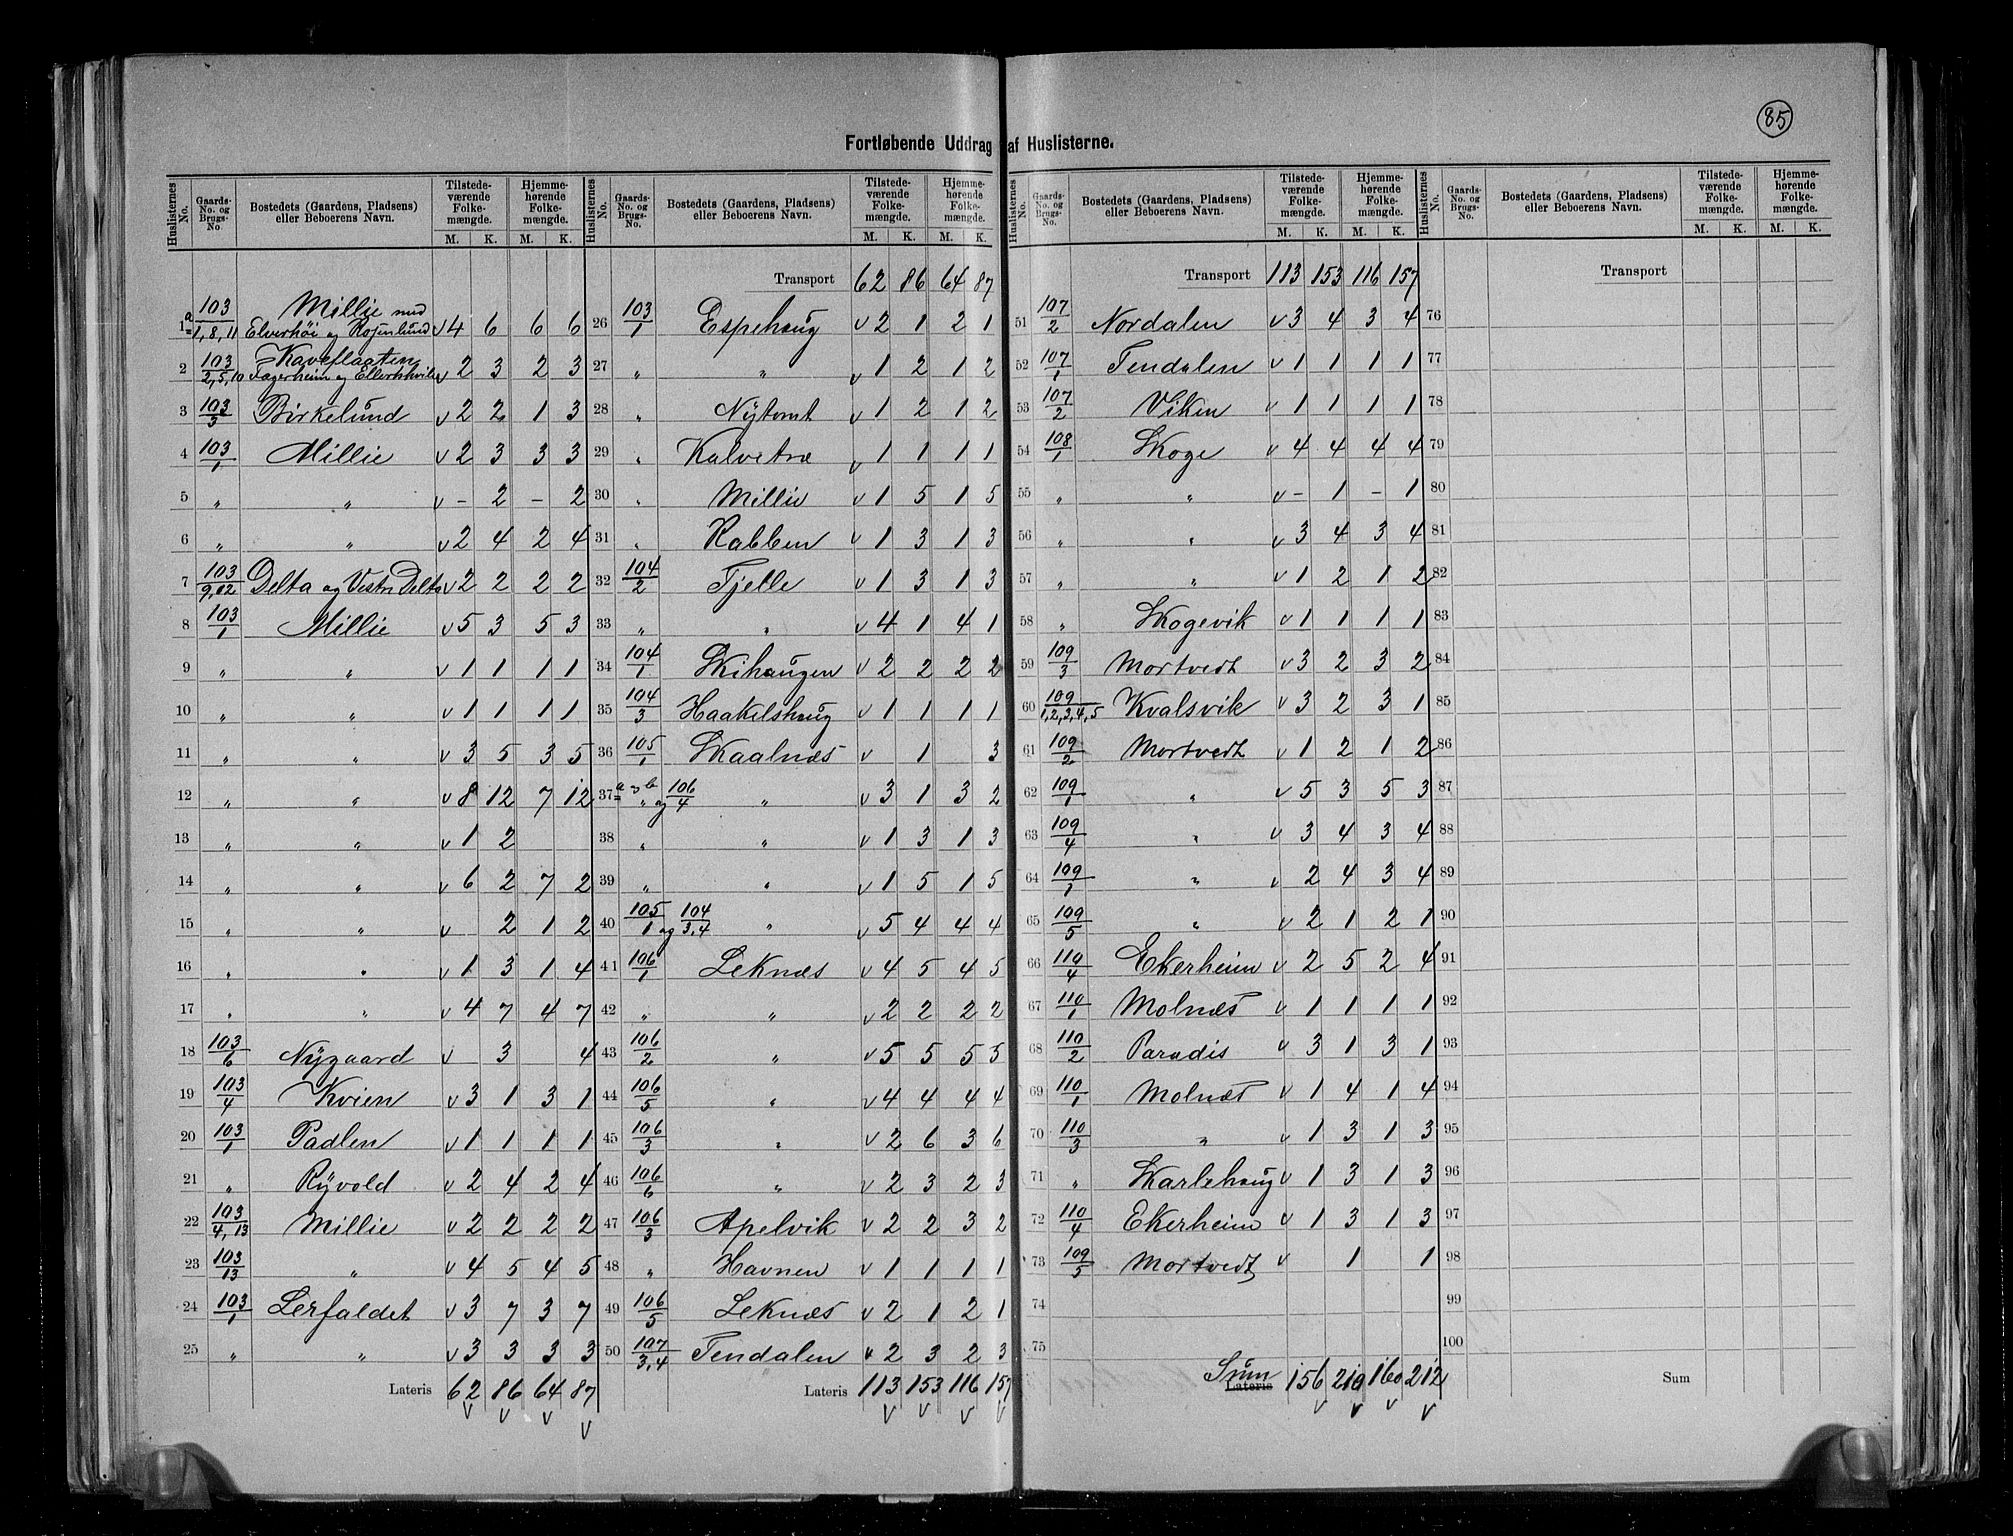 85
Fortløbende Uddrag af Huslisterne.
Huslisternes No. Gaards-No. og Brugs-No. Bostedets (Gaardens, Pladsens) eller Beboerens Navn. Tilstedeværende Folkemængde. M. K. Hjemmehørende Folkemængde. M. K.
1 a 103/1, 8, 11 Millie med Elverhöi og Rosenlund v 4 6 6 6
2 103/2, 5, 10 Fagerheim og v 2 3 2 3
3 103/3 Birkelund v 2 2 1 3
4 103/1 Millie v 2 3 3 3
5 " " v - 2 - 2
6 " " v 2 4 2 4
7 103/9, 12 Delta og Vestr Delta v 2 2 2 2
8 103/1 Millie v 5 3 5 3
9 " " v 1 1 1 1
10 " " v 1 1 1 1
11 " " v 3 5 3 5
12 " " v 8 12 7 12
13 " " v 1 2
14 " " v 6 2 7 2
15 " " v 2 1 2
16 " " v 1 3 1 4
17 " " v 4 7 4 7
18 103/6 Nygaard v 3 4
19 103/4 Kvien v 3 1 3 1
20 103/1 Padlen v 1 1 1 1
21 " Ryvold v 2 4 2 4
22 103/4, 13 Millie v 2 2 2 2
23 103/13 " v 4 5 4 5
24 103/1 Lerfaldet v 3 7 3 7
25 " " v 3 3 3 3
Lateris 62 86 64 87
v v v v
Huslisternes No. Gaards-No. og Brugs-No. Bostedets (Gaardens, Pladsens) eller Beboerens Navn. Tilstedeværende Folkemængde. M. K. Hjemmehørende Folkemængde. M. K.
Transport 62 86 64 87
26 103/1 Espehaug v 2 1 2 1
27 " " v 1 2 1 2
28 " Nytomt v 1 2 1 2
29 " Kalvetræ v 1 1 1 1
30 " Millie v 1 5 1 5
31 " Rabben v 1 3 1 3
32 104/2 Fjelle v 1 3 1 3
33 " " v 4 1 4 1
34 104/1 Skihaugen v 2 2 2 2
35 104/3 Haakelshaug v 1 1 1 1
36 105/1 Skaalnæs v 1 3
37 a og b " og 106/4 " v 3 1 3 2
38 " " v 1 3 1 3
39 " " v 1 5 1 5
40 105/1 og 104/3,4 " v 5 4 4 4
41 106/1 Leknæs v 4 5 4 5
42 " " v 2 2 2 2
43 106/2 " v 5 5 5 5
44 106/5 " v 4 4 4 4
45 106/3 " v 2 6 3 6
46 106/6 " v 2 3 2 3
47 106/3 Apelvik v 2 2 3 2
48 " Havnen v 1 1 1 1
49 106/5 Leknæs v 2 1 2 1
50 107/3,4 Tendalen v 2 3 2 3
Lateris 113 153 116 157
v v v v
Huslisternes No. Gaards-No. og Brugs-No. Bostedets (Gaardens, Pladsens) eller Beboerens Navn. Tilstedeværende Folkemængde. M. K. Hjemmehørende Folkemængde. M. K.
Transport 113 153 116 157
51 107/2 Nordalen v 3 4 3 4
52 107/1 Tendalen v 1 1 1 1
53 107/2 Viken v 1 1 1 1
54 108/1 Skoge v 4 4 4 4
55 " " v - 1 - 1
56 " " v 3 4 3 4
57 " " v 1 2 1 2
58 " Skogevik v 1 1 1 1
59 109/3 Mortvedt v 3 2 3 2
60 109/1,2,3,4,5 Kvalsvik v 3 2 3 1
61 109/2 Mortvedt v 1 2 1 2
62 109/1 " v 5 3 5 3
63 109/4 " v 3 4 3 4
64 109/1 " v 2 4 3 4
65 109/5 " v 2 1 2 1
66 110/4 Ekerheim v 2 5 2 4
67 110/1 Molnæs v 1 1 1 1
68 110/2 Paradis v 3 1 3 1
69 110/1 Molnæs v 1 4 1 4
70 110/3 " v 1 3 1 3
71 " Skarlehaug v 1 3 1 3
72 110/4 Ekerheim v 1 3 1 3
73 109/5 Mortvedt v 1 1
74
75
Sum
Lateris 156 210 160 212
v v v v
Huslisternes No. Gaards-No. og Brugs-No. Bostedets (Gaardens, Pladsens) eller Beboerens Navn. Tilstedeværende Folkemængde. M. K. Hjemmehørende Folkemængde. M. K.
Transport
76
77
78
79
80
81
82
83
84
85
86
87
88
89
90
91
92
93
94
95
96
97
98
99
100
Sum